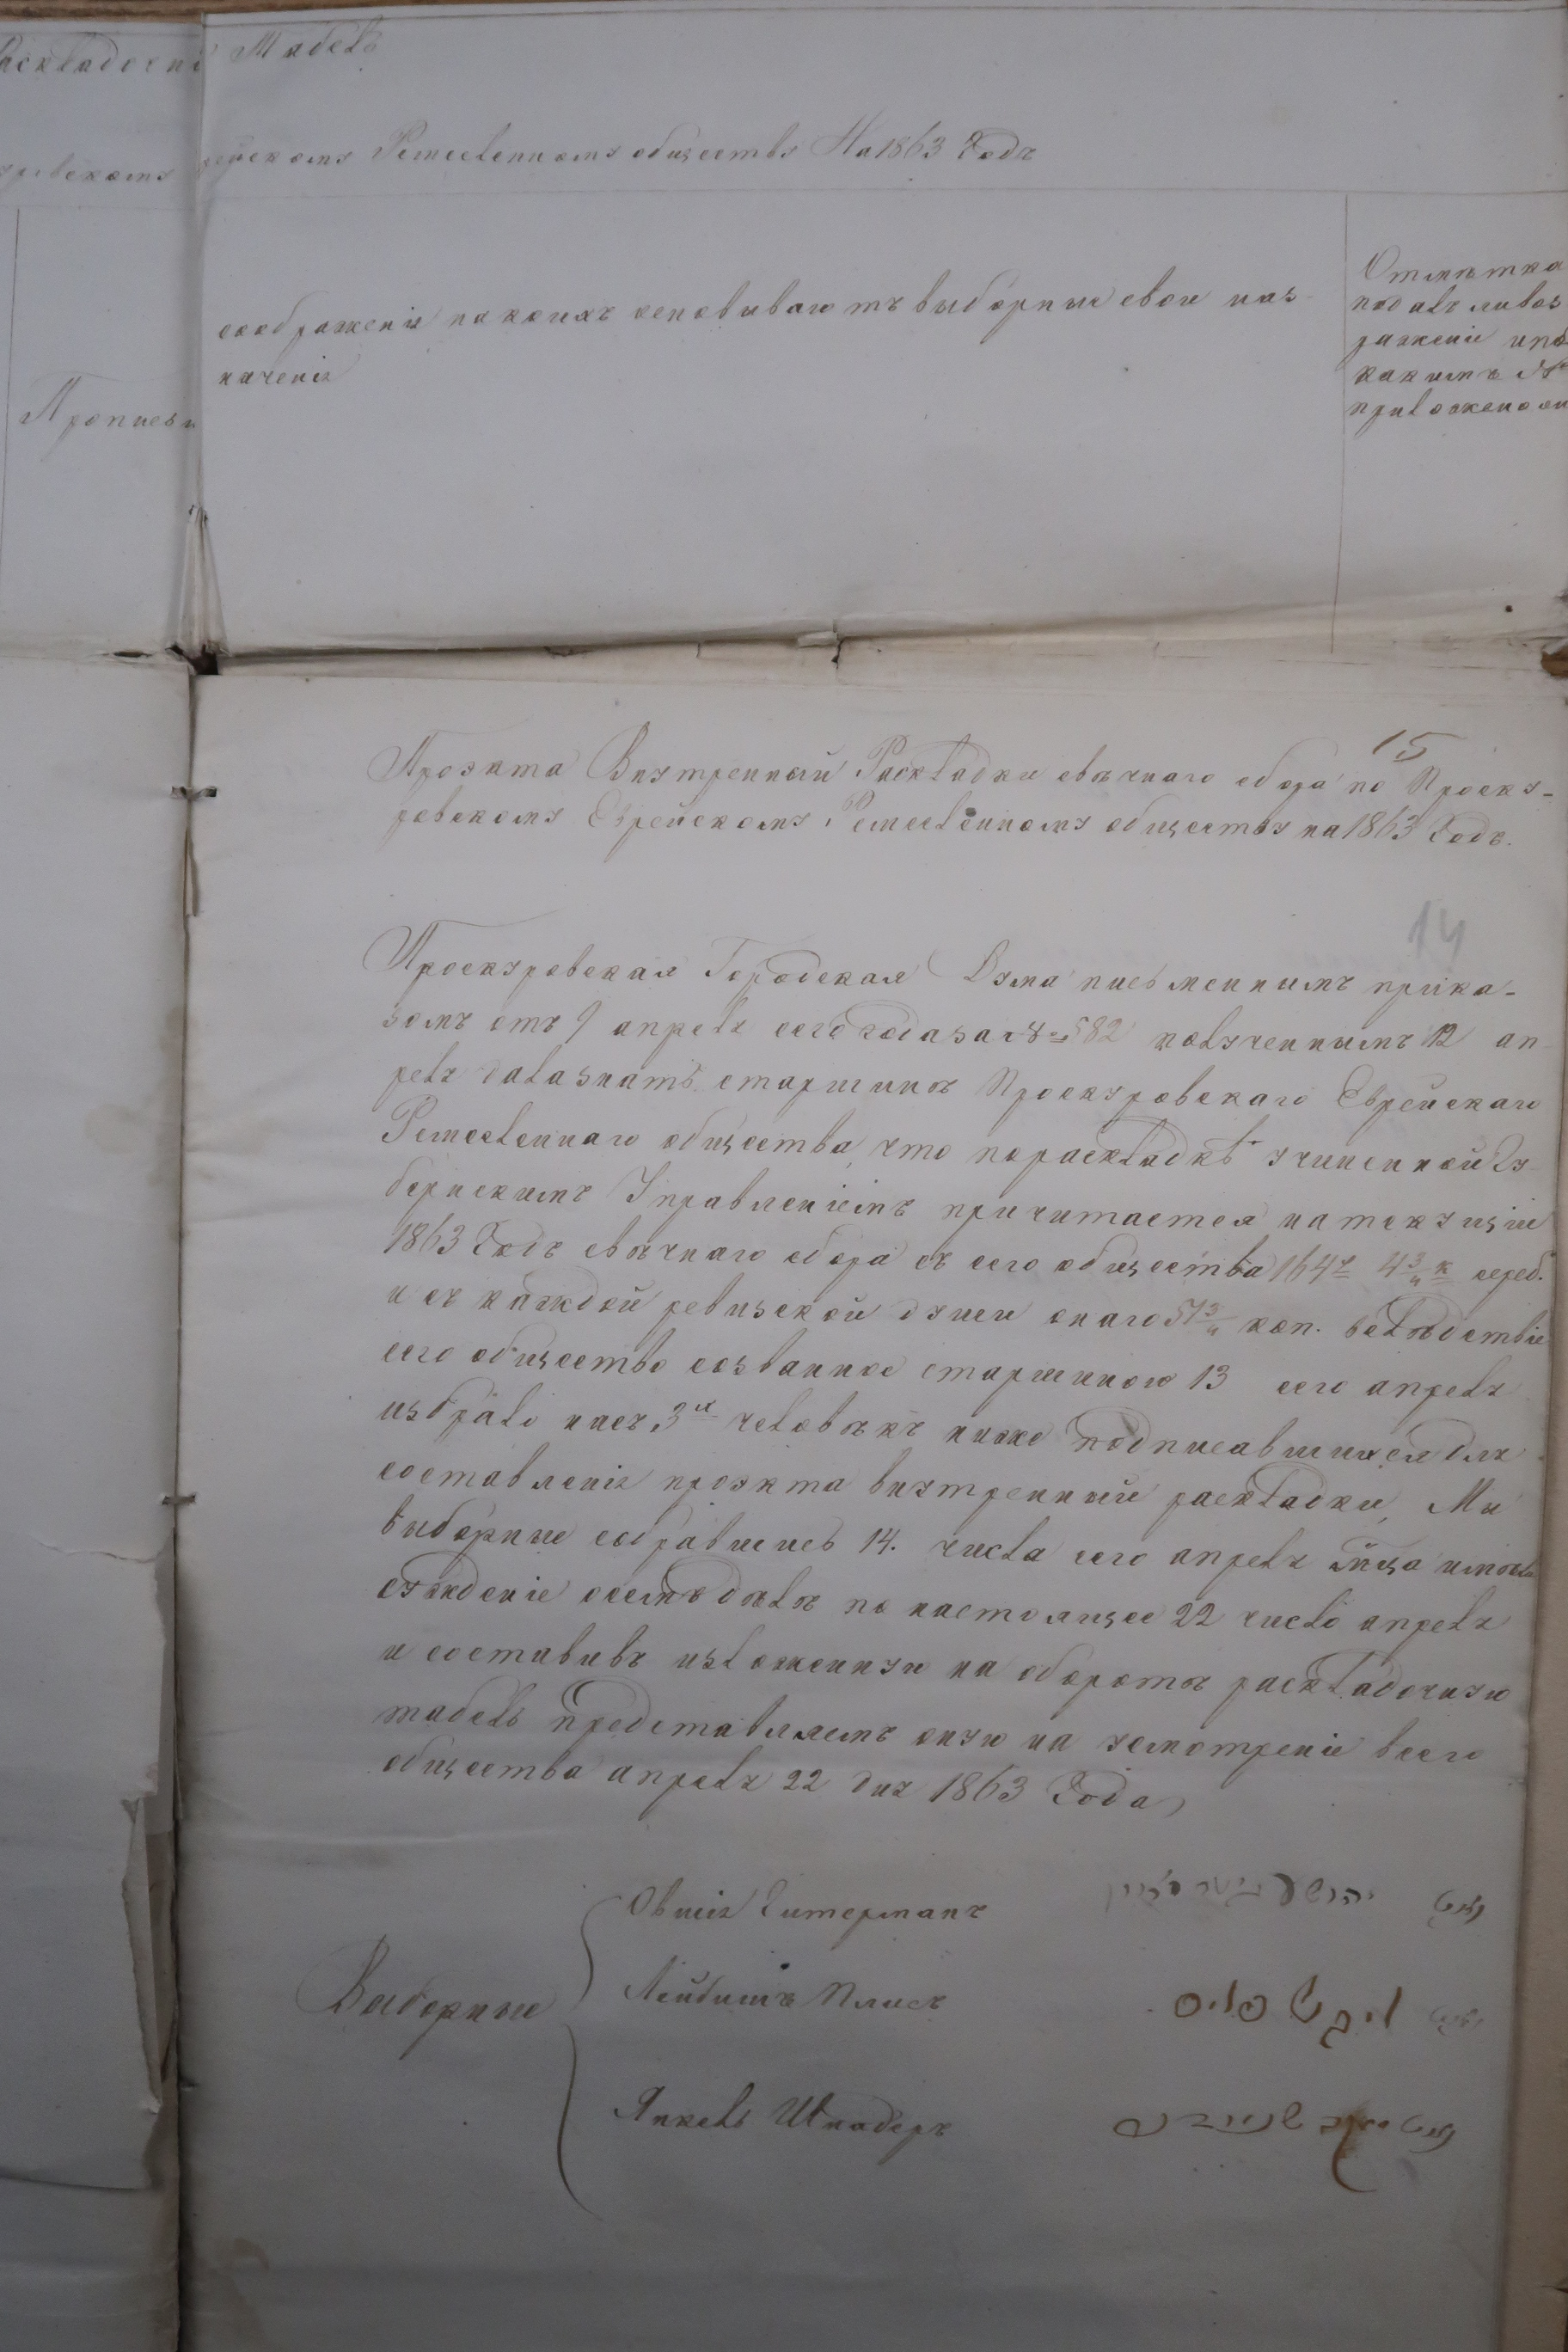 Раскладочнi
Табель
ровскомъ
рейскому Ремесленому обществу На 1863 Годъ
Прописью
сооброженiи на коихъ основиваютъ выборныи свои наз
наченiя
Отмѣтка
подалъ ли воз
раженiе и по
какимъ №
приложено ли
15
Проэкта Внутренный Раскладки свѣчнаго сбора по Проску-
ровскому Еврейскому Ремесленному обществу на 1863 Годъ.
14
Проскуровская Городская Дума письменнымъ прика-
зомъ отъ 9 апреля сего года за № 582 полученнымъ 12 ап
реля дала знать старшинѣ Проскуровскаго Еврейскаго
Ремесленнаго общества, что по раскладкѣ учиненной Гу
бернскимъ Управленiемъ причитается на текущiи
1863 Годъ свѣчнаго сбора съ сего общества 164 р 4 3/4 к сереб.
и съ каждой ревизской души онаго 57 3/4 коп. вслѣдствiе
сего общество созванное старшиною 13 сего апреля
избрало насъ 3х человѣкъ ниже подписавшихся для
составленiя проэкта внутренный раскладки, Ми
выборные собравшись 14. числа сего апреля м̃ца имѣли
сужденiе о семъ дѣлѣ по настоящее 22 число апреля
и составивъ изложенную на оборотѣ раскладочную
табель представляемъ оную на усмотренiе всего
общества апреля 22 дня 1863 Года
Выборные
Овшiя Гитерманъ
Лейбишъ Плисъ ליבש פליס
Янкель Шнадеръ